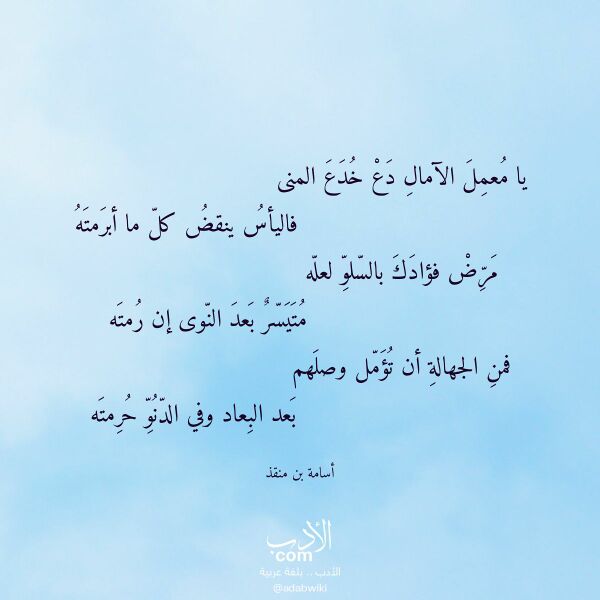 يا مُعمِلَ الآمالِ دَعْ خُدَعَ المنى
فاليأسُ ينقضُ كلّ ما أبرَمتَهُ
مَرِّضْ فؤادَكَ بالسّلوِّ لعلّه
مُتَيَسّرٌ بَعدَ النّوى إن رُمتَه
فمنِ الجهالةِ أن تُؤَمّل وصلَهم
بَعد البِعاد وفي الدّنُوِّ حُرِمتَه
أسامة بن منقذ
الأدب
com
الأدب .. بلغة عربية
@adabwiki